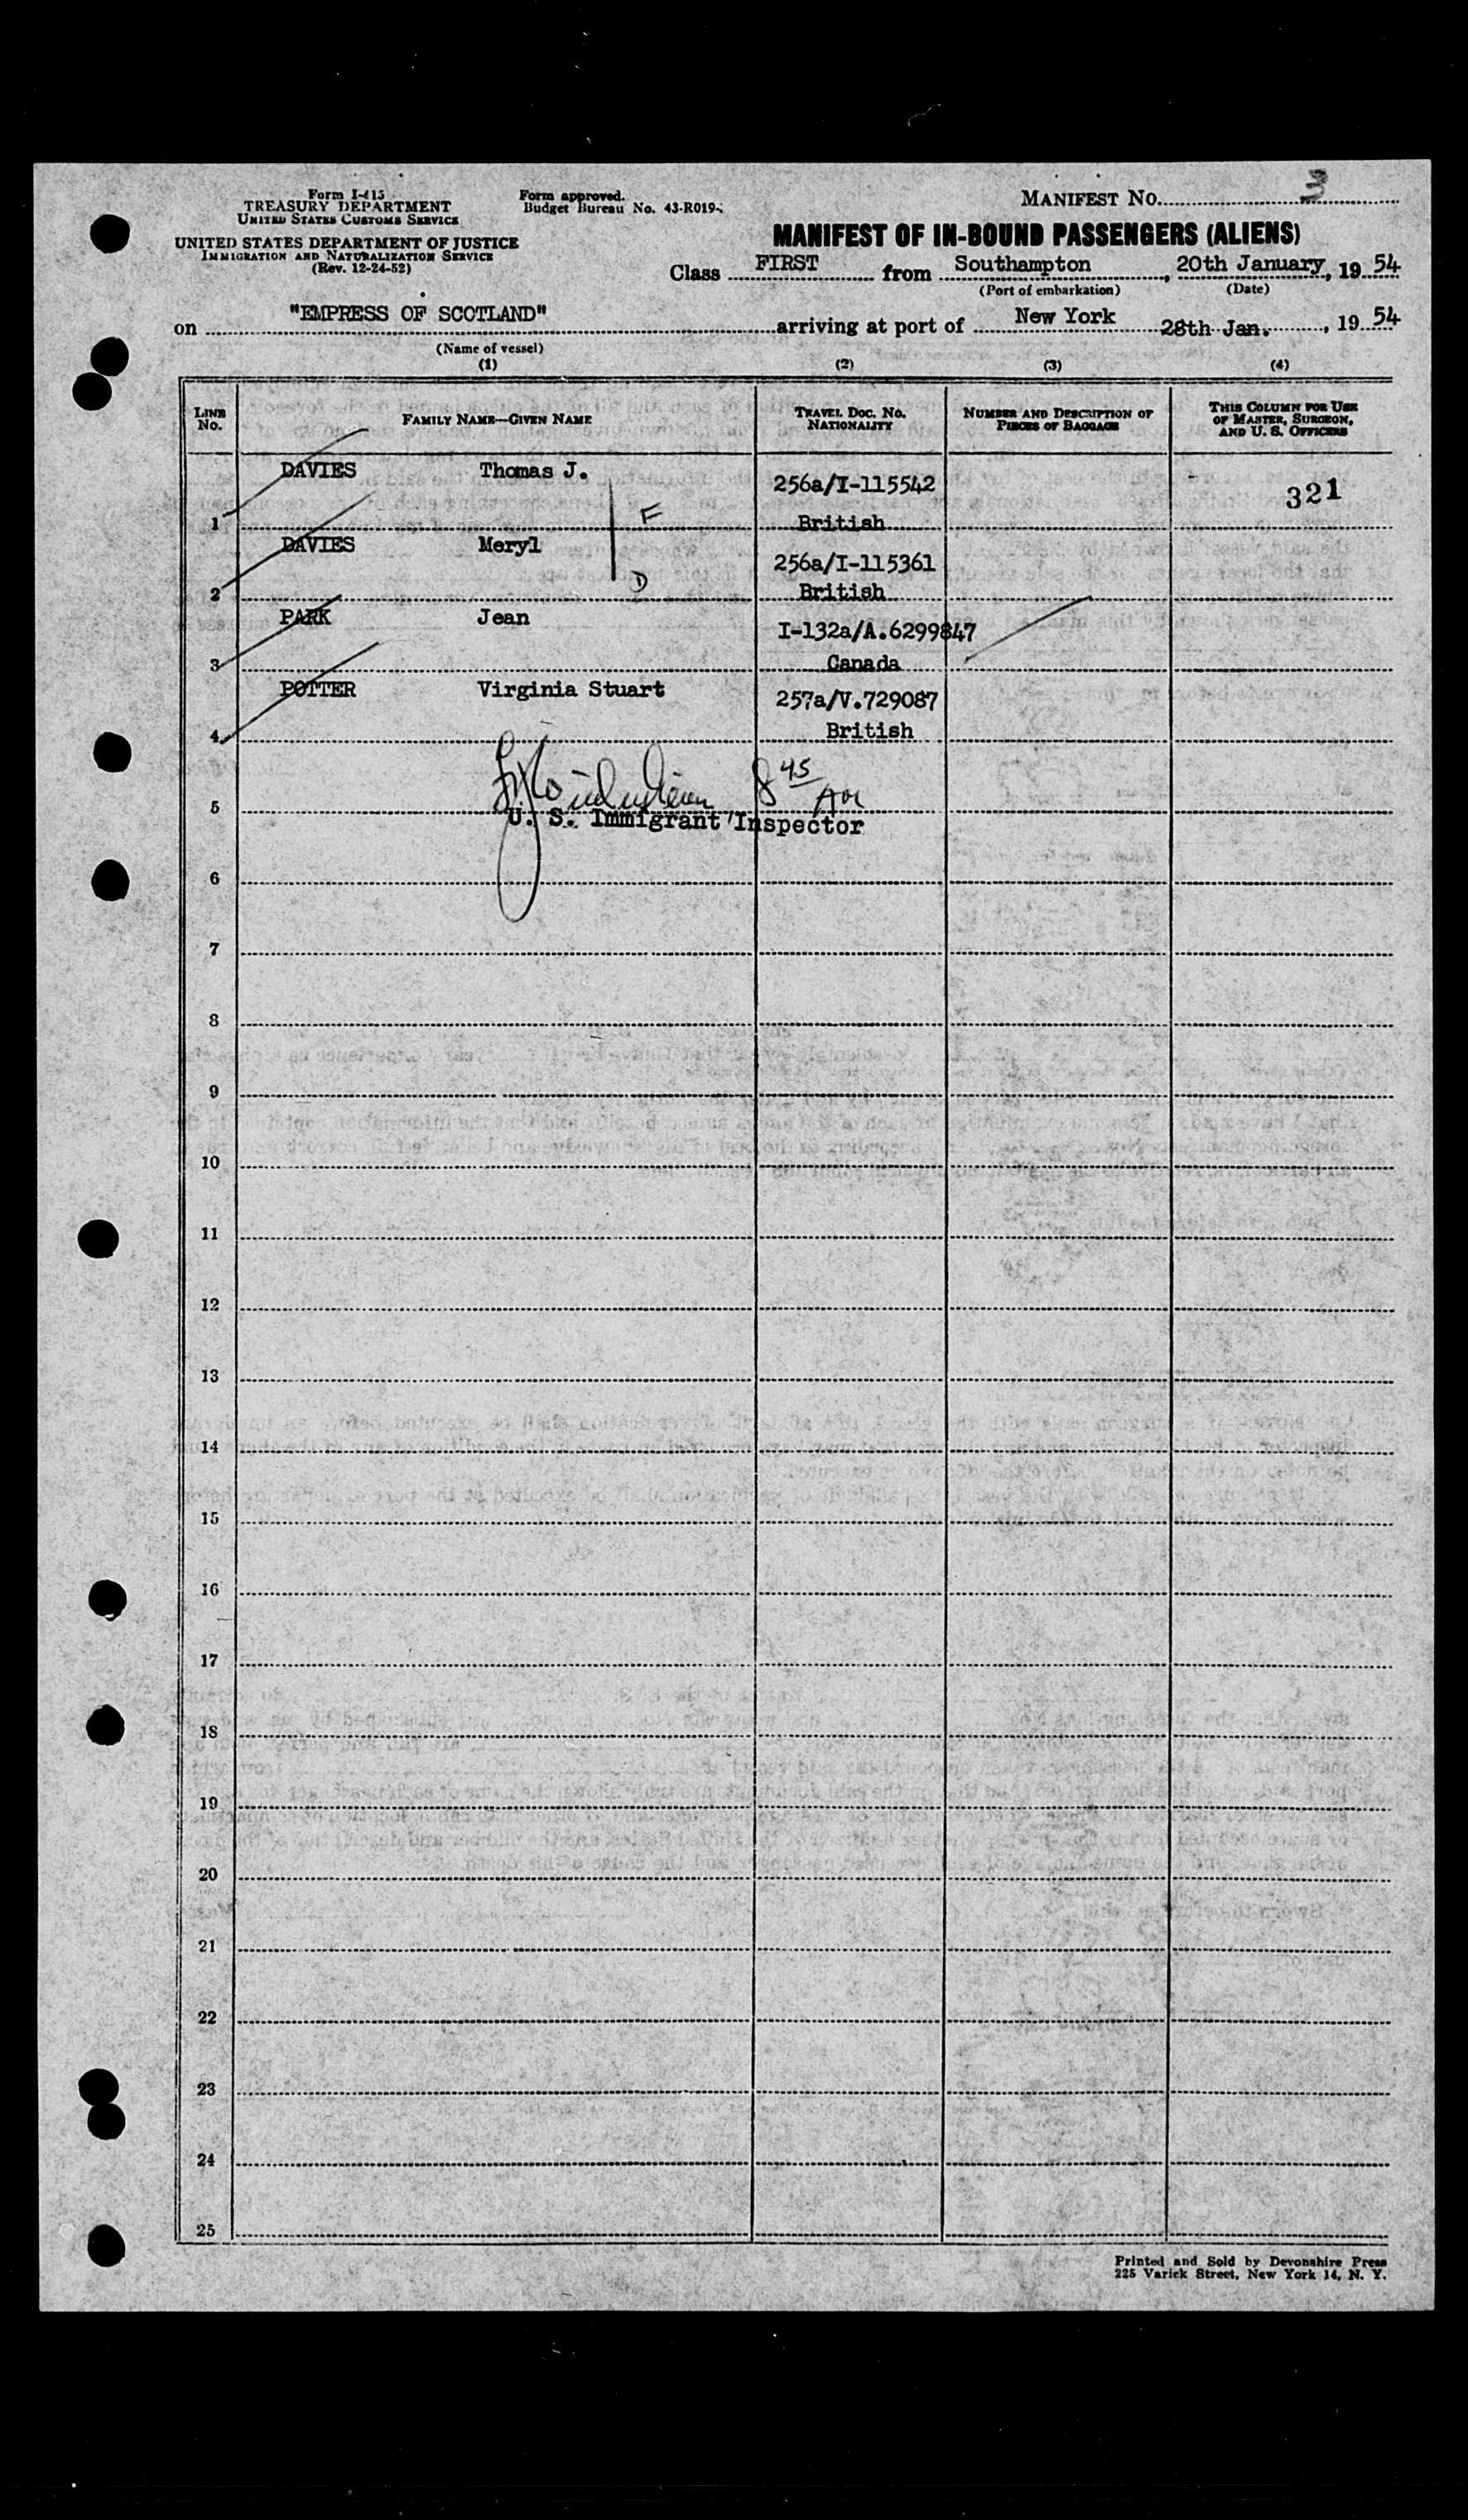 Form I-415
TREASURY DEPARTMENT
UNITED STATES CUSTOMS SERVICE
UNITED STATES DEPARTMENT OF JUSTICE
IMMIGRATION AND NATURALIZATION SERVICE
(Rev. 12-24-52)
Form approved.
Budget Bureau No. 43-R019-
MANIFEST NO. 3
MANIFEST OF IN-BOUND PASSENGERS (ALIENS)
Class FIRST from Southampton, 20th January, 19 54
(Port of embarkation) (Date)
on "EMPRESS OF SCOTLAND" arriving at port of New York 28th Jan., 19 54
(Name of vessel)
(1) (2) (3) (4)
LINE No. FAMILY NAME—GIVEN NAME TRAVEL DOC. NO. NATIONALITY NUMBER AND DESCRIPTION OF PIECES OF BAGGAGE THIS COLUMN FOR USE OF MASTER, SURGEON, AND U. S. OFFICERS
1 DAVIES Thomas J. F 256a/I-115542 British 321
2 DAVIES Meryl D 256a/I-115361 British
3 PARK Jean I-132a/A.6299847 Canada
4 POTTER Virginia Stuart 257a/V.729087 British
8 45 AM
5
U. S. Immigrant Inspector
6
7
8
9
10
11
12
13
14
15
16
17
18
19
20
21
22
23
24
25
Printed and Sold by Devonshire Press
225 Varick Street, New York 14, N. Y.